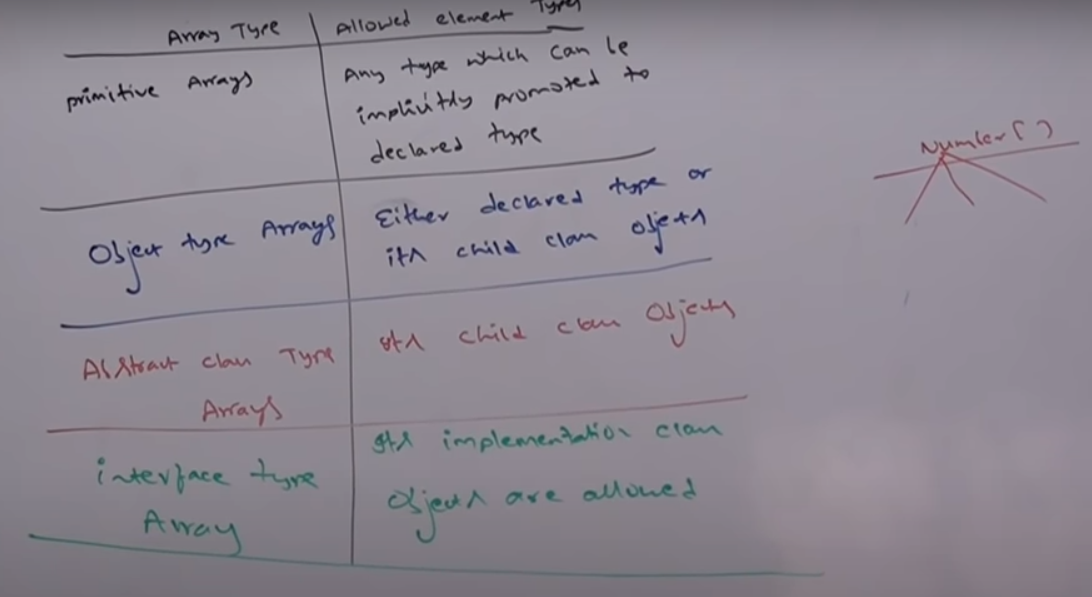 Array Type
Allowed element Types
primitive Arrays
Any type which can be
implicitly promoted to
declared type
Object type Arrays
Either declared type or
its child class objects
Abstract class Type
Arrays
its child class Objects
interface type
Array
its implementation class
objects are allowed
Number[]